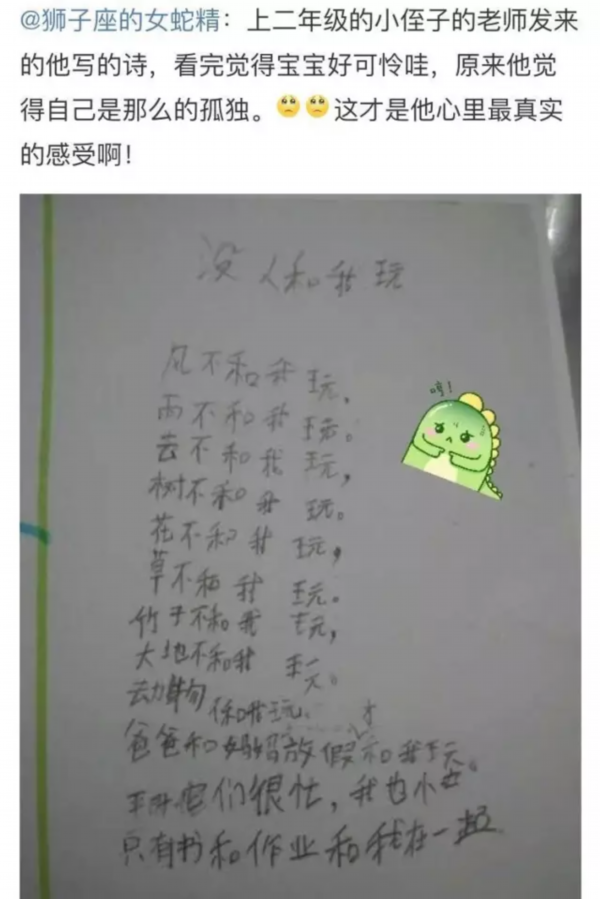 @狮子座的女蛇精：上二年级的小侄子的老师发来
的他写的诗，看完觉得宝宝好可怜哇，原来他觉
得自己是那么的孤独。🥺🥺这才是他心里最真实
的感受啊！
没人和我玩
风不和我玩，
雨不和我玩。
去不和我玩，
树不和我玩。
哼！
花不和我玩，
草不和我玩。
竹子不和我玩，
大地不和我玩。
动物不和我玩。
才
爸爸和妈妈放假和我玩。
平时他们很忙，我也
只有书和作业和我在一起